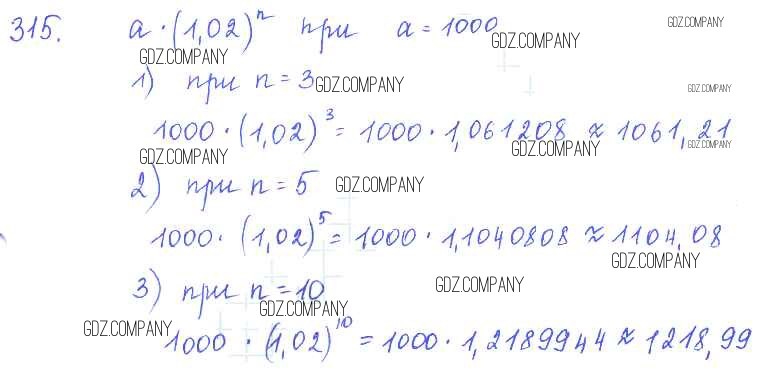 315. a · (1,02)ⁿ при a = 1000
GDZ.COMPANY GDZ.COMPANY GDZ.COMPANY
1) при n = 3 GDZ.COMPANY GDZ.COMPANY
1000 · (1,02)³ = 1000 · 1,061208 ≈ 1061,21
GDZ.COMPANY GDZ.COMPANY GDZ.COMPANY
2) при n = 5 GDZ.COMPANY
1000 · (1,02)⁵ = 1000 · 1,1040808 ≈ 1104,08
GDZ.COMPANY
3) при n = 10 GDZ.COMPANY
GDZ.COMPANY
GDZ.COMPANY
1000 · (1,02)¹⁰ = 1000 · 1,2189944 ≈ 1218,99